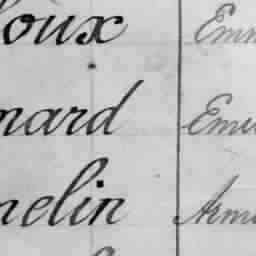 oux Emm
nard Emi
nelin Arm